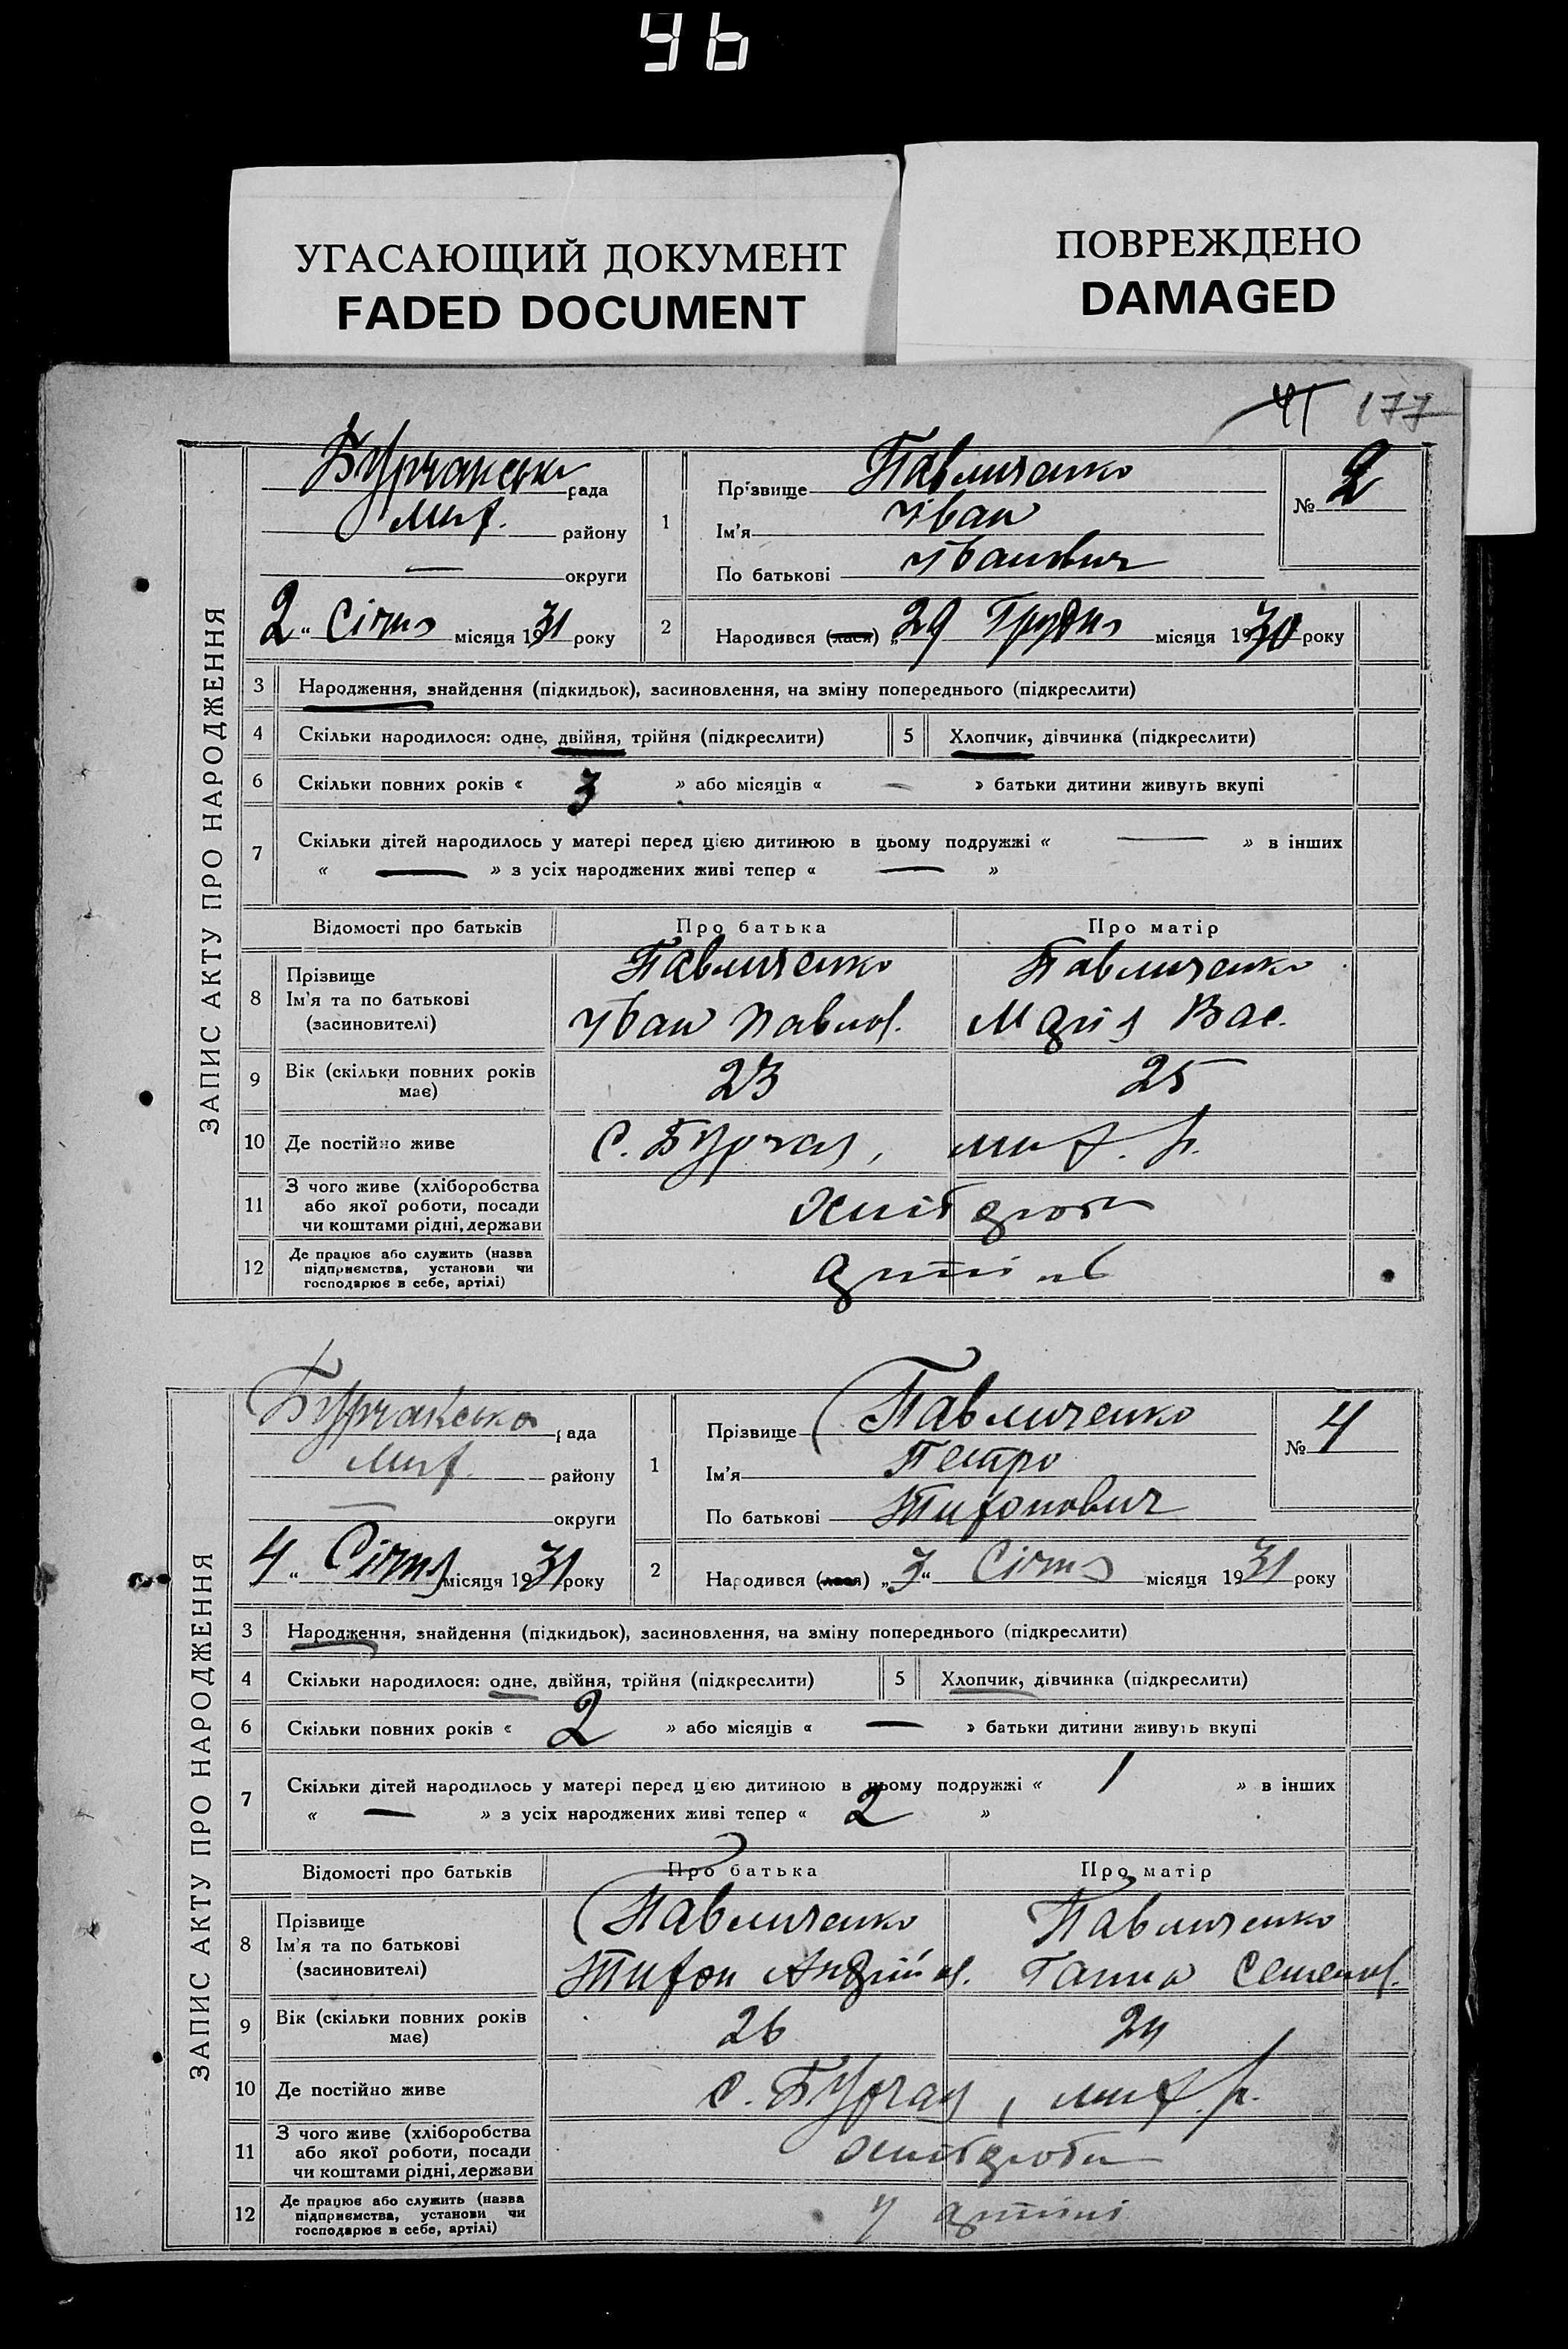 96
УГАСАЮЩИЙ ДОКУМЕНТ
FADED DOCUMENT
ПОВРЕЖДЕНО
DAMAGED
41 177
ЗАПИС АКТУ ПРО НАРОДЖЕННЯ
Бурчакська рада
Мих. району
— округи
2 " Січня місяця 1931 року
1 Прізвище Павличенко
Ім'я Іван
По батькові Іванович
№ 2
2 Народився (лася) „ 29 Грудня місяця 1930 року
3 Народження, знайдення (підкидьок), засиновлення, на зміну попереднього (підкреслити)
4 Скільки народилося: одне, двійня, трійня (підкреслити) 5 Хлопчик, дівчинка (підкреслити)
6 Скільки повних років « 3 » або місяців « — » батьки дитини живуть вкупі
7 Скільки дітей народилось у матері перед цією дитиною в цьому подружжі « — » в інших
« — » з усіх народжених живі тепер « — »
Відомості про батьків Про батька Про матір
8 Прізвище Павличенко Павличенко
Ім'я та по батькові Іван Павлов. Марія Вас.
(засиновителі)
9 Вік (скільки повних років має) 23 25
10 Де постійно живе с. Бурчак, мих. р.
11 З чого живе (хліборобства
або якої роботи, посади
чи коштами рідні, держави хлібороби
12 Де працює або служить (назва
підприємства, установи чи
господарює в себе, артілі) артіль
ЗАПИС АКТУ ПРО НАРОДЖЕННЯ
Бурчакська рада
Мих. району
— округи
4 " Січня місяця 1931 року
1 Прізвище Павличенко
Ім'я Петро
По батькові Тихонович
№ 4
2 Народився (лася) „3" Січня місяця 1931 року
3 Народження, знайдення (підкидьок), засиновлення, на зміну попереднього (підкреслити)
4 Скільки народилося: одне, двійня, трійня (підкреслити) 5 Хлопчик, дівчинка (підкреслити)
6 Скільки повних років « 2 » або місяців « — » батьки дитини живуть вкупі
7 Скільки дітей народилось у матері перед цією дитиною в цьому подружжі « 1 » в інших
« — » з усіх народжених живі тепер « 2 »
Відомості про батьків Про батька Про матір
8 Прізвище Павличенко Павличенко
Ім'я та по батькові Тихон Андрійов. Ганна Семенов.
(засиновителі)
9 Вік (скільки повних років має) 26 24
10 Де постійно живе с. Бурчак, мих. р.
11 З чого живе (хліборобства
або якої роботи, посади
чи коштами рідні, держави хлібороби
12 Де працює або служить (назва
підприємства, установи чи
господарює в себе, артілі) у артілі